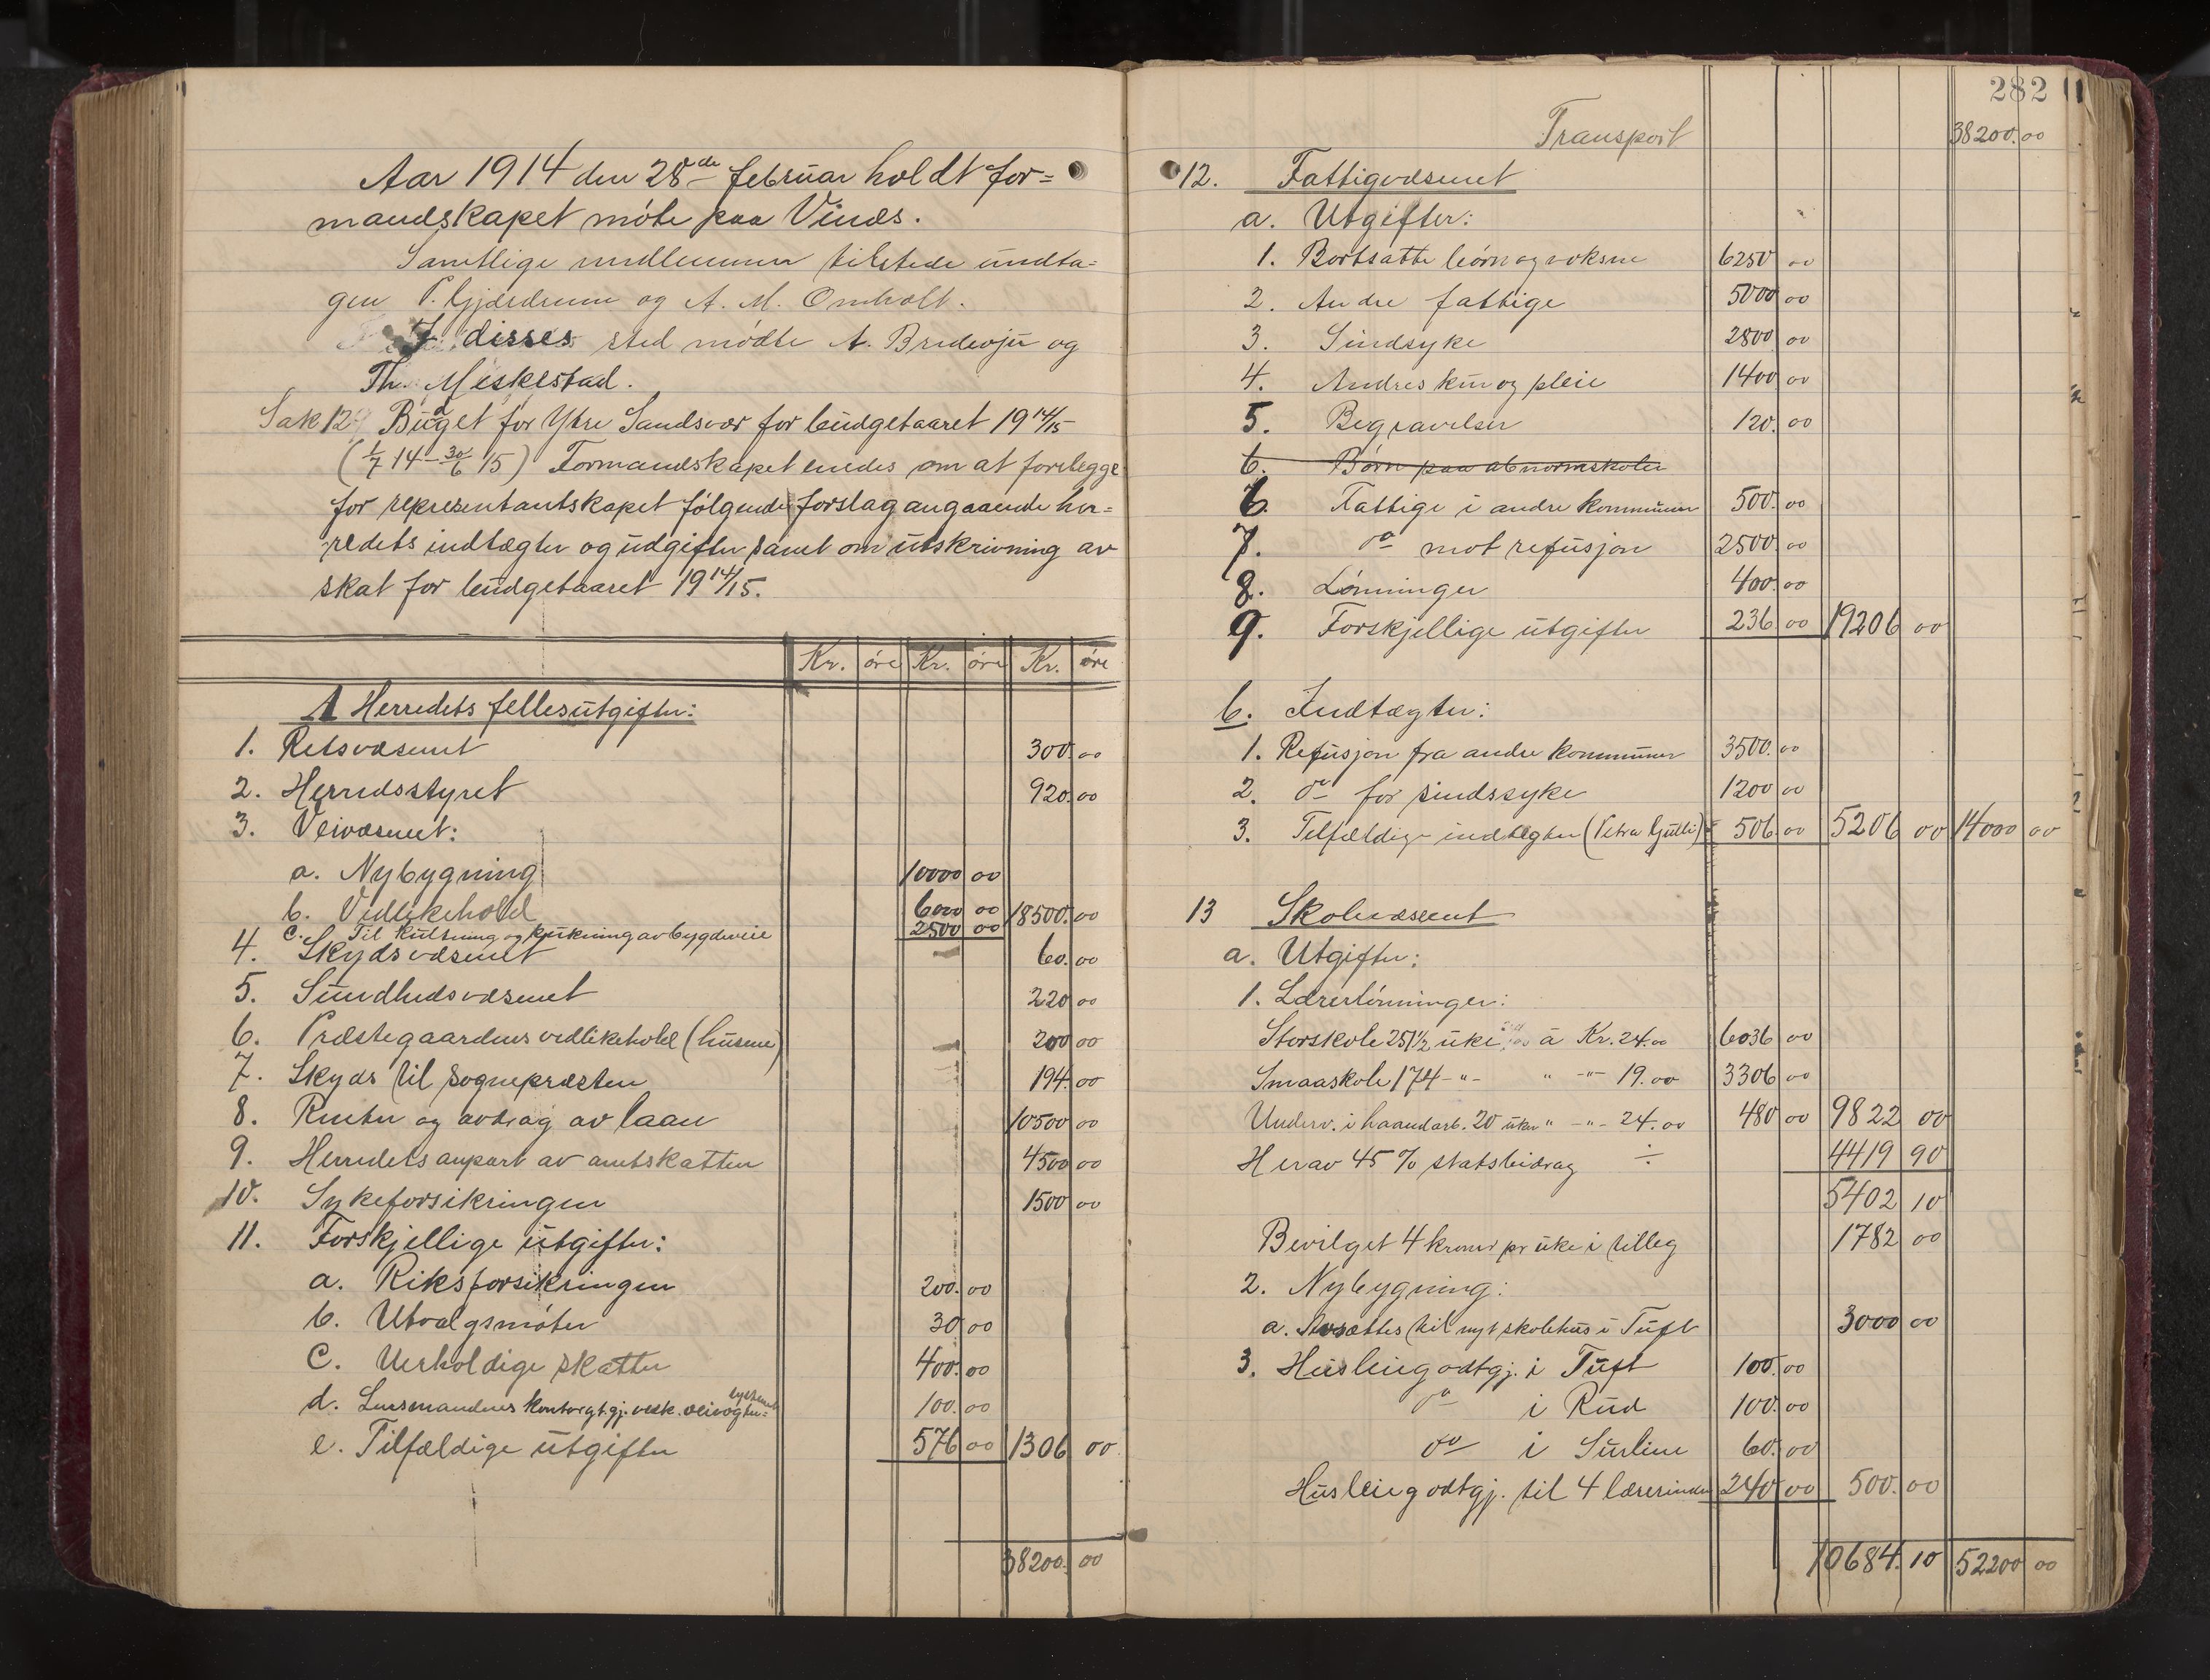 Aar 1914 den 28de februar holdt for=
mandskapet møte paa Vinæs.
Samtlige medlemmer tilstede undta=
gen P. Gjærdrum og A. M. Omholt.
I disses sted mødte A. Bredesju og
Th. Meskestad.
Sak 12 Budget for Ytre Sandsvær for budgetaaret 1914/15
(1/7 14 - 30/6 15) Formandskapet enedes om at forelegge
for representantskapet følgende forslag angaaende her=
redets indtægter og udgifter samt om utskrivning av
skat for budgetaaret 1914/15.
Kr. øre Kr. øre Kr. øre
A Herredets fellesutgifter:
1. Retsvæsenet 300.00
2. Herredsstyret 920.00
3. Veivæsenet:
a. Nybygning 10000 00
b. Vedlikehold 6000 00 18500.00
c. Til kultning og av bygdeveie 2500 00
4. Skydsvæsenet 60.00
5. Sundhedsvæsenet 220 00
6. Præstegaardens vedlikehold (husene) 200 00
7. Skyds til sognepræsten 194.00
8. Renter og avdrag av laan 10500 00
9. Herredets anpart av amtskatten 4500 00
10. Sykeforsikringen 1500 00
11. Forskjellige utgifter:
a. Riksforsikringen 200.00
b. Utvalgsmøter 30 00
c. Uerholdige skatter 400.00
d. Lensmandens kontorgt.gj. 100.00
e. Tilfældige utgifter 576 00 1306 00
38200.00
282
Transport 38200.00
12. Fattigvæsenet
a. Utgifter:
1. Bortsatte børn og voksne 6250 00
2. Andre fattige 5000 00
3. Sindsyke 2800 00
4. Andres kur og pleie 1400 00
5. Begravelser 120.00
6. Børn paa abnormskoler
6. Fattige i andre kommuner 500.00
7. do mot refusjon 2500.00
8. Lønninger 400.00
9. Forskjellige utgifter 236 00 19206 00
b. Indtægter:
1. Refusjon fra andre kommuner 3500.00
2. do for sindssyke 1200 00
3. Tilfældige indtægter (Petra Gulli) 506.00 5206 00 14000 00
13 Skolevæsenet
a. Utgifter:
1. Lærerlønninger:
Storskole 251 1/2 uke à Kr. 24.00 6036 00
Smaaskole 174 -"- " -"- 19.00 3306 00
Underv. i haandarb. 20 uker " -"- 24.00 480 00 9822 00
Herav 45 % statsbidrag ÷ 4419 90
5402 10
Bevilget 4 kroner pr uke i tilleg 1782 00
2. Nybygning:
a. Avsættes til nyt skolehus i Tuft 3000 00
3. Husleiegodtgj. i Tuft 100.00
do i Rud 100.00
do i Surlien 60.00
Husleiegodtgj. til 4 lærerinder 240 00 500.00
10684.10 52200 00